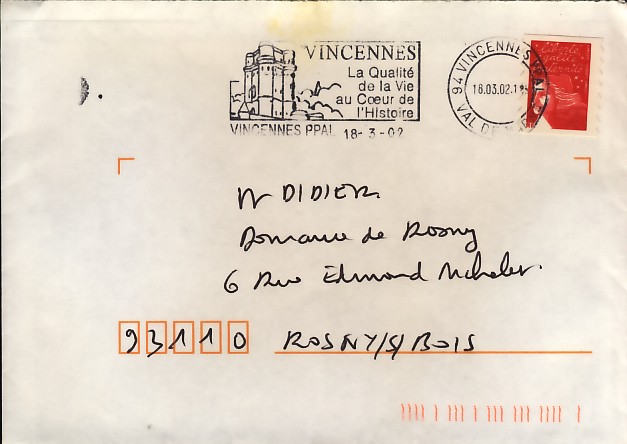 VINCENNES
La Qualité
de la Vie
au Cœur de
l'Histoire
VINCENNES PPAL 18-3-02
94 VINCENNES PPAL
18.03.02
VAL DE
Liberté
Mr DIDIER
Domaine de Rosny
6 Rue Edmond Michelet.
93110 ROSNY/S/BOIS